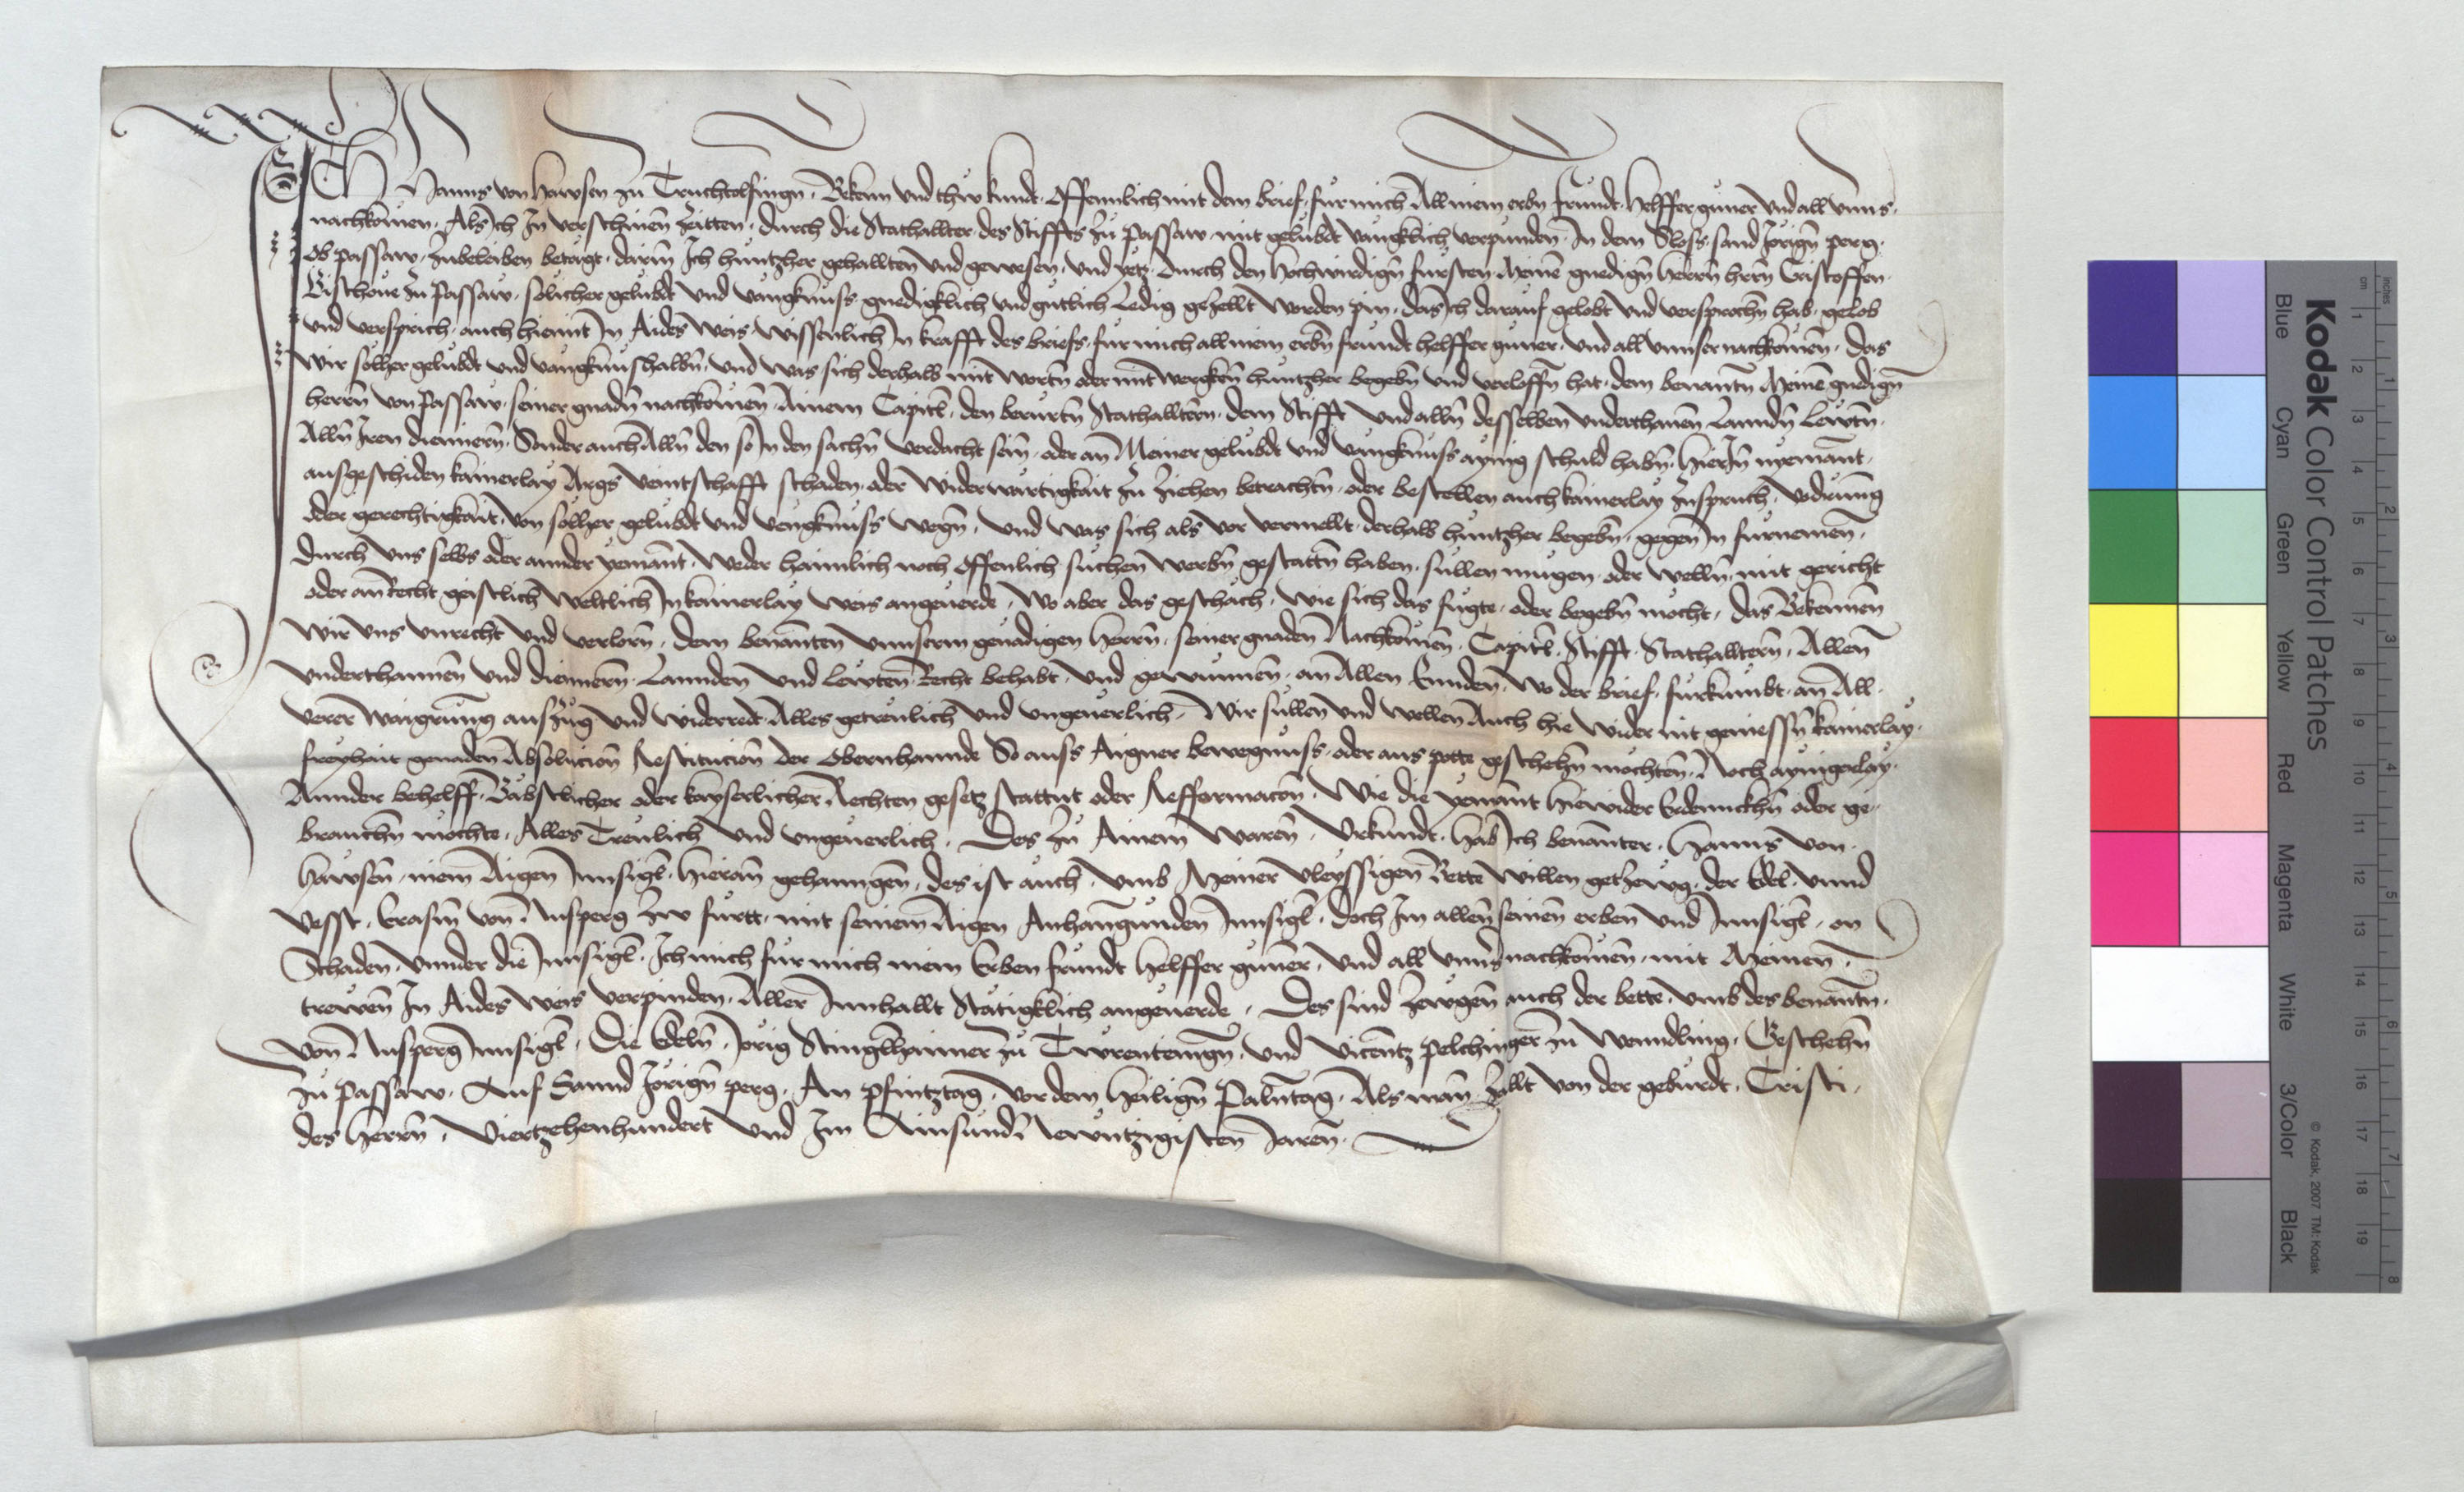 ICH Hanns von Hawsen zu Truchtolfingn. Bekenn und thůw kundt. Offennlich mit dem brief. fur mich All mein erbn frundt. Helffer guner und all unns.
nachkomen. Als Ich In verschinen Zeitten. durch die Stathallter des Stiffts Zu Passaw. mit gelubdt vangklich verpunden. In dem Sloss sand Jorign perg.
Ob passaw. Zubeleiben betagt. darin Ich huntzher gehallten und gewesen. und yetz. durch den Hochwirdign fursten. Meinen gnedign Herrn hern Cristoffen.
Bischove Zu Passaw. solicher gelubdt und vangknuss gnedigklich und gutlich Ledig gezellt worden pin. das Ich darauf gelobt und versprochn hab. gelob
und versprich. auch hiemit In Aides weis wissenlich In krafft des briefs. fur mich all mein erbn frundt helffer guner. und all unnser nachkomen. das
wir solher gelubdt und vangknushalbn. und was sich derhalb mit wortn oder mit wergken huntzher begebn und verloffn hat. dem benantn Meinen gnedign
herrn von Passaw. seiner gnadn nachkomen. Ainem Capitl. den berurtn Stathalltern. dem Stifft und alln desselben underthanen Lanndn Lewtn.
Alln Iren dienern. Sonder auch Alln den so In den sachn verdacht sein. oder an Meiner gelubdt und vangknuss ainig schuld habn. hierIn nyemant.
ausgeschiden kainerlay Args veintschafft schaden. oder widerwartigkait Zu Ziehen betrachtn. oder bestellen auch kainerlay Zuspruch. vodrung
oder gerechtigkait. von solher gelubdt und vengknuss wegn. und was sich als vor vermellt. derhalb huntzher begebn. gegen In furnemen.
durch uns selbs oder annder yemant. weder haimlich noch Offenlich suchen werbn gestattn haben. sullen mugen. oder welln. mit gericht
oder an Recht geistlich weltlich In kainerlay weis angeuerde. Wo aber das geschach. wie sich das fugte. oder begebn mocht. das Bekennen
wir uns unrecht und verlorn. dem benanten unnserm genadigen Herrn. seiner gnaden Nachkomen. Capitl. Stifft. Stathalltern. Allen
underthannen und dienern. Lannden und Lewten Recht behabt. und gewunnen. an Allen Ennden. wo der brief. furkumbt. an All.
verer waigrung aufzug und widerredt. Alles getreulich und ungeuerlich. Wir sullen und wellen Auch hie wider nit geniessn kainerlay.
freyhait genaden Absolucion Restitucion der Obernhannde So auss Aigner bewegnuss. oder aus pette geschehn mochten. Noch aynigerlay.
Annder behelff. Babstlicher oder kayserlicher Rechten gesetz stattut oder Refformacon. Wie die yemant hiewider Erdennckhn oder ge-
brauchn mochte. Alles Treulich und ungeuerlich. Des Zu Ainem waren. Urkundt. hab Ich benanter. Hanns von.
Hawsen. mein Aigen Innsigl. hieran gehanngen. des ist auch. umb Meiner vleyssigen Bette willen getzewg. der Edel. unnd
Vesst. Erasm von Nusperg Zw furtt. mit seinem Aigen Anhangunden Innsigl. doch Im allen seinen erben und Innsigl. on
Schaden. Unnder die Innsigl. Ich mich fur mich mein Erben frundt helffer guner. und all unns nachkomen. mit Meinen.
trewen In Aides weis verpinden. Aller Innhallt Statigklich angeuerde. Des sind Zewgen auch der bette. umb des benantn.
von Nusperg Innsigl. Die Edeln. Jorig Stinglhaimer zu Twrentenign. und Vicentz Pelchinger zu Wenndling. Geschehn
Zu Passaw. Auf Sannd Jorign perg. An Pfintztag. vor dem Heilign Palmtag. Als man Zallt von der geburdt. Cristi.
des Herrn. Viertzehenhundert und Im Ainsundnewntzigisten Jaren.
Kodak Color Control Patches
Blue Cyan Green Yellow Red Magenta White 3/Color Black
© Kodak, 2007 TM: Kodak
inches 1 2 3 4 5 6 7 8
cm 1 2 3 4 5 6 7 8 9 10 11 12 13 14 15 16 17 18 19